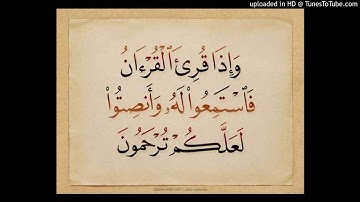 uploaded in HD @ TunesToTube.com
وَإِذَا قُرِئَ ٱلْقُرْءَانُ
فَٱسْتَمِعُوا۟ لَهُۥ وَأَنصِتُوا۟
لَعَلَّكُمْ تُرْحَمُونَ